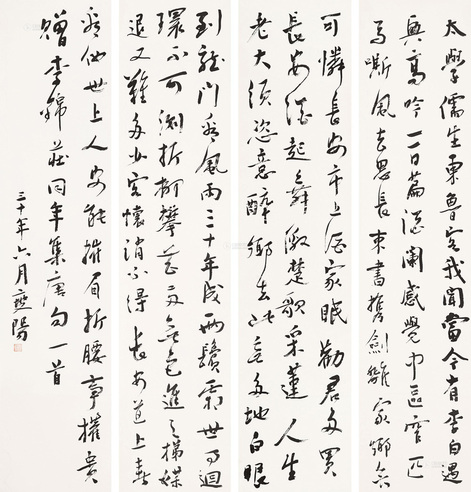 太學儒生東魯客我聞當今有李白遇
興高吟一百篇酒闌感覺中區窄匹
馬嘶風去思長束書攜劍離家鄉
可憐長安市上酒家眠勸君多買
長安酒起舞激楚歌采蓮人生
老大須恣意醉鄉去此無多地白眼
到龍門看風雨三十年成兩鬢霜世事迴
環不可測折柳攀花兩無色進之梯媒
退又難多少客懷消不得長安道上春
看他世上人安能摧眉折腰事權貴
贈李錦莊同年集唐句一首
三十年六月 陽